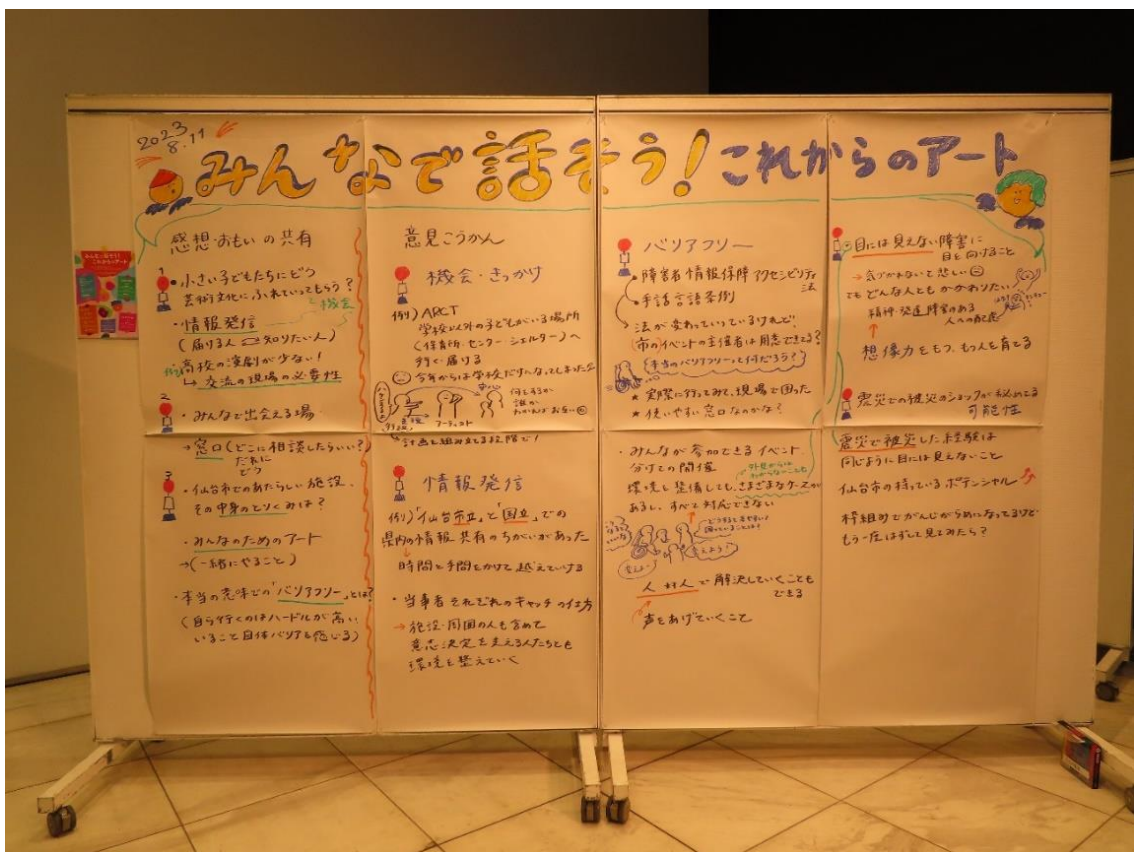 2023
8.11
みんなで話そう!これからのアート
感想・おもいの共有
1
・小さい子どもたちにどう
芸術文化にふれていってもらう?
機会
・情報発信
(届ける人 知りたい人)
高校の演劇が少ない!
交流の現場の必要性
2
・みんなで出会える場
→窓口(どこに相談したらいい?
だれに
どう
3
・仙台市でのあたらしい施設、
その中身のとりくみは?
・みんなのためのアート
→(一緒にやること)
・本当の意味での「バリアフリー」とは?
(自ら行くのはハードルが高い
いること自体バリアを感じる)
意見こうかん
機会・きっかけ
例)ARCT
学校以外の子どもがいる場所
(保育所・センター・シェルター)へ
行く・届ける
今年からは学校だけになってしまった
アーティスト
何をするか
誰か
わかればお互い
計画を組み立てる段階で!
情報発信
例)「仙台市立」と「国立」での
県内の情報共有のちがいがあった
時間と手間をかけて越えていける
・当事者それぞれのキャッチの仕方
→施設・周囲の人も含めて
意志決定を支える人たちとも
環境を整えていく
バリアフリー
・障害者情報保障アクセシビリティ
法
・手話言語条例
法が変わっていっているけれど!
(市の)イベントの主催者は用意できてる?
本当のバリアフリーって何だろう?
★実際に行ってみて、現場で困った
★使いやすい窓口なのかな?
・みんなが参加できるイベント
分けての開催
外見からは
わからないことも
環境を整備しても、さまざまなケースが
あるし、すべて対応できない
人対人で解決していくことも
できる
声をあげていくこと
目には見えない障害に
目を向けること
→気づかれないで悲しい
でもどんな人ともかかわりたい
精神・発達障害のある
人への配慮
想像力をもつ、もつ人を育てる
震災での被災のショックが秘めてる
可能性
震災で被災した経験は
同じように目には見えないこと
仙台市の持っているポテンシャル
枠組みでがんじがらめになってるけど
もう一度はずして見てみたら?
みんなで話そう!
これからのアート